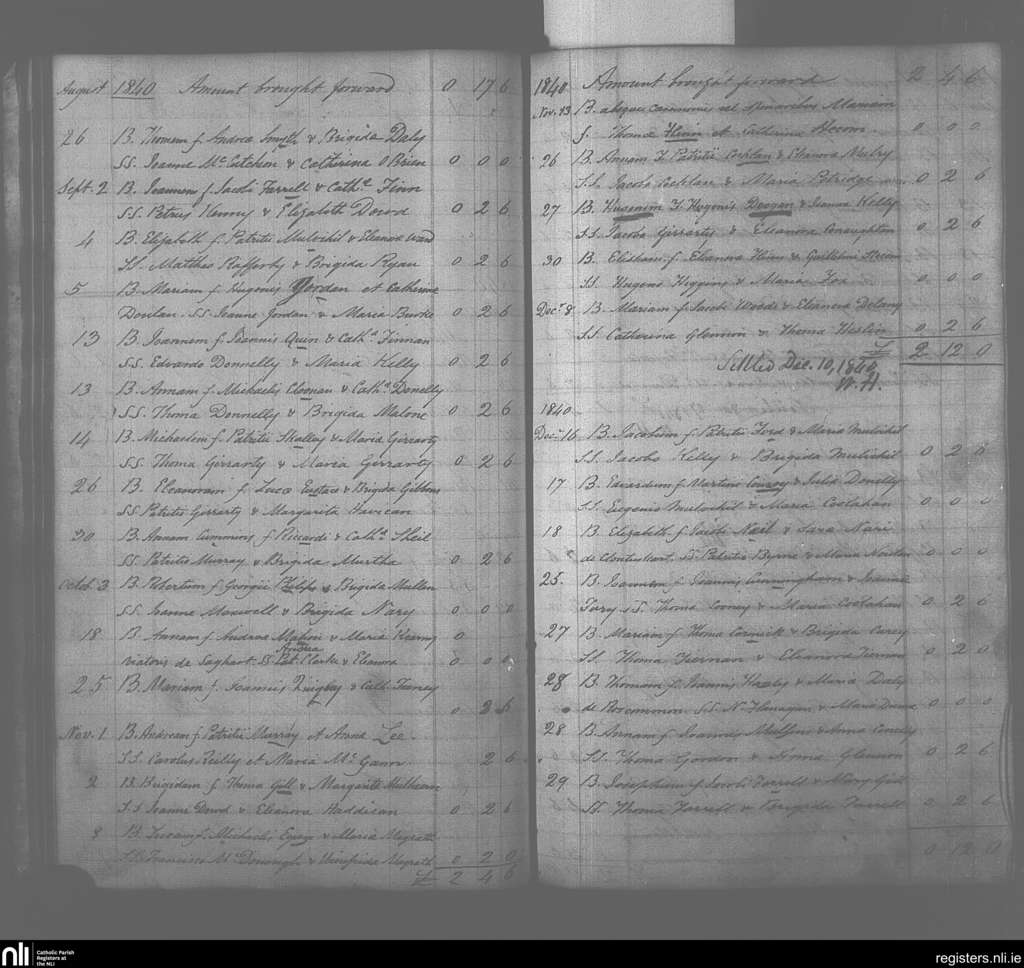 August 1840 Amount brought forward 0 17 6
26 B. Thomam f. Andrea Smyth & Brigida Daly
SS. Joanne McCutchen & Catherina O Brien 0 0 0
Sept. 2 B. Joannem f. Jacobi Farrell & Cath.a Finn
SS. Petrus Kenny & Elizabeth Dowd 0 2 6
4 B. Elizabeth f. Patritii Mulvihil & Eleanora Ward
SS. Mattheo Rafferty & Brigida Ryan 0 2 6
5 B. Mariam f. Hugonis Jordan et Catherine
Doulan. SS. Joanne Jordan & Maria Burke 0 2 6
13 B. Joannem f. Joannis Quin & Cath.a Finnan
SS. Edvardo Donnelly & Maria Kelly 0 2 6
13 B. Annam f. Michaelis Cloonan & Cath.a Donelly
SS. Thoma Donnelly & Brigida Malone 0 2 6
14 B. Michaelem f. Patritii Skalley & Maria Girrarty
SS. Thoma Girrarty & Maria Girrarty 0 2 6
26 B. Eleanoram f. Luca Eustace & Brigida Gibbons
SS. Patritio Girrarty & Margarita Havican
30 B. Annam Cummins f. Riccardi & Cath.a Sheil
SS. Patritio Murray & Brigida Murtha 0 2 6
Octob. 3 B. Robertum f. Georgii Phelps & Brigida Mullen
SS. Joanne Maxwell & Brigida Nary 0 0 0
18 B. Annam f. Andrea Mahon & Maria Kearny 0
Andrea
viatoris de SS. Pat. Clarke & Eleanora 0 0 0
25 B. Mariam f. Joannis Quigley & Cath.
0 2 6
Nov. 1 B. Andream f. Patritii Murray et Anna Lee.
SS. Carolus Reilly et Maria McGann. 2 6
2 B. Brigidam f. Thoma Gill & Margarita
SS Joanne Dowd & Eleanora Haddican 0 2 6
8 B. f. Michaelis & Maria Megrath
SS. Francisco McDonough & Winifrida Megrath 0 2 0
£ 2 4 6
1840 Amount brought forward 2 4 6
Nov. 13 B. absque vel Mariam
f. Thoma et Catherina 0 0 0
26 B. Annam f. Patritii Cochlan & Eleanora
SS. Jacobo Cochlan & Maria 0 2 6
27 B. f. Hugonis Deegan & Joanna Kelly
SS. Jacobo Girrarty & Eleanora Conaughton 0 2 6
30 B. f. Eleanora & Gulielmi
SS. Hugone Higgins & Maria Fox 0 0 0
Dec.r 8 B. Mariam f. Jacobi Woods & Eleanora Delany
SS Catherina Glennon & Thoma Heslin 0 2 6
£ 2 12 0
Settled Dec. 10, 1840,
W. H.
1840
Dec.r 16 B. Jacobum f. Patritii Ford & Maria Mulvihil
SS. Jacobo Kelly & Brigida Mulvihil 0 2 6
17 B. f. Martino Conroy & Julia Donelly
SS. Eugenio Mulvihil & Maria Coolahan 0 0 0
18 B. Elizabeth f. Jacobi Neil &
de SS. Patritio Byrne & Maria 0 0 0
25. B. f. Joannis Cunningham & Joanna
SS. Thoma Cooney & Maria Coolahan 0 2 6
27 B. Mariam f. Thoma Cormick & Brigida
SS. Thoma Tiernan & Eleanora Tiernan 0 2 0
28 B. Thomam f. Joannis & Maria Daly
de Roscommon. SS. N. Flanagan & Maria 0 0 0
28 B. Annam f. Joannis & Anna
SS. Thoma Gordon & Anna Glennon 0 2 6
29 B. Josephum f. Jacobi Farrell & Mary Gill
SS. Thoma Farrell & Brigida Farrell 0 2 6
0 12 0
nli
Catholic Parish
Registers at
the NLI
registers.nli.ie